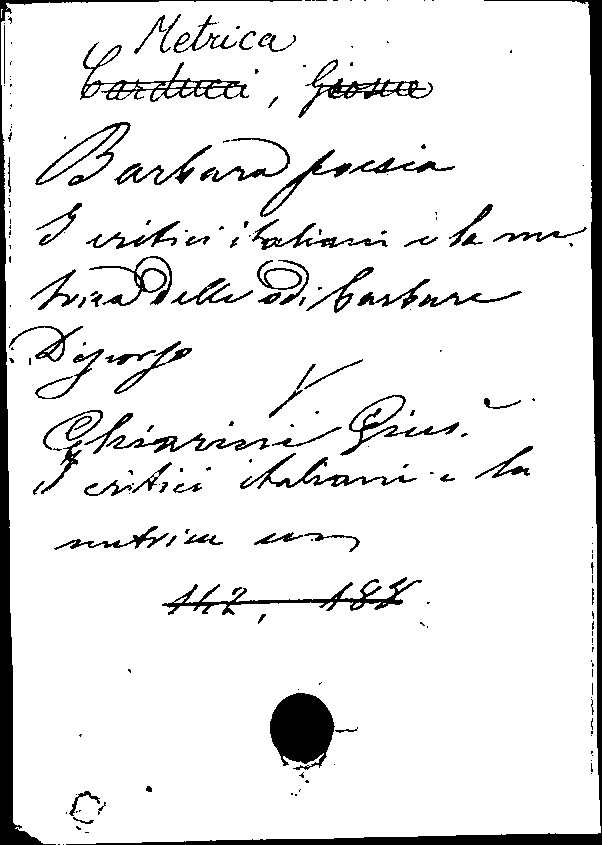 Metrica
Carducci, Giosue
Barbara poesia
I critici italiani e la me-
trica delle odi barbare
Discorso
Chiarini Gius.
I critici italiani e la
metrica
112, 188